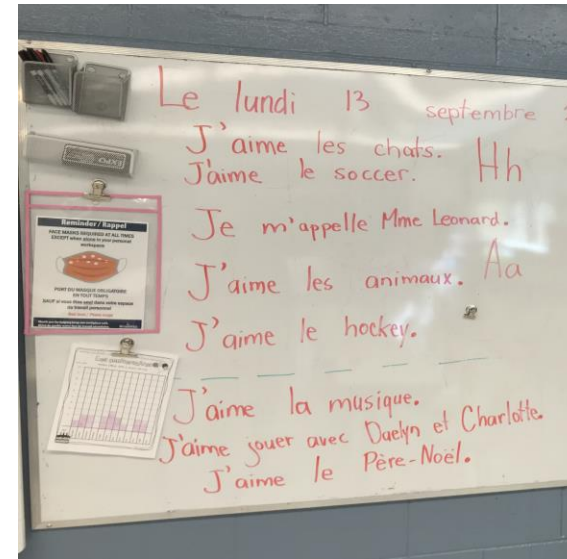 Le lundi 13 septembre
J'aime les chats.
J'aime le soccer.
Hh
Je m'appelle Mme Leonard.
J'aime les animaux.
Aa
J'aime le hockey.
J'aime la musique.
J'aime jouer avec Daelyn et Charlotte.
J'aime le Père-Noël.
EXPO
Reminder / Rappel
FACE MASKS REQUIRED AT ALL TIMES
EXCEPT when alone in your personal
workspace
PORT DU MASQUE OBLIGATOIRE
EN TOUT TEMPS
SAUF si vous êtes seul dans votre espace
de travail personnel